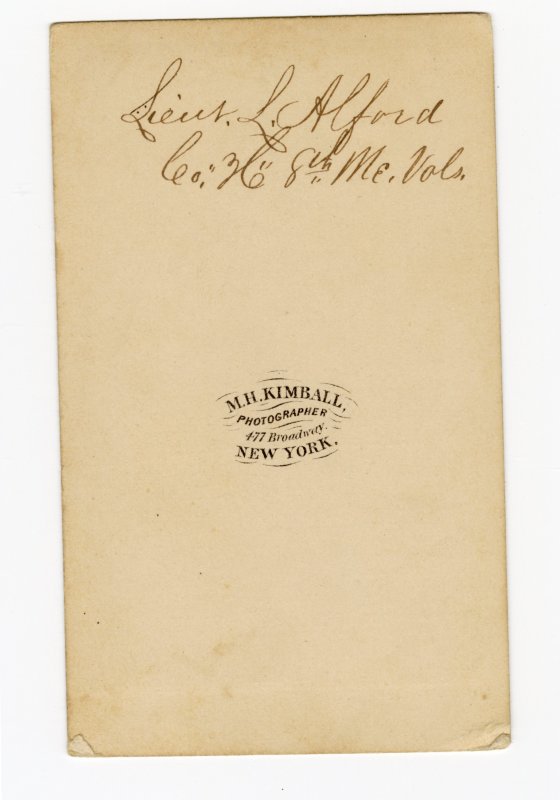 Lieut. L. Alford
Co. "H" 8th Me. Vols.
M.H. KIMBALL,
PHOTOGRAPHER
477 Broadway.
NEW YORK.